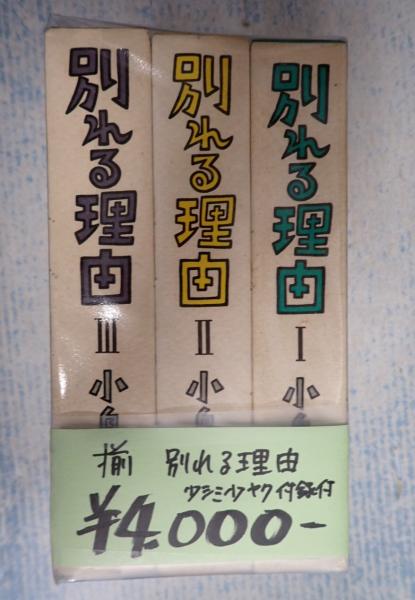 別れる理由 I 小島
別れる理由 II 小島
別れる理由 III 小島
揃 別れる理由
少シミ少ヤケ付録付
¥4000-